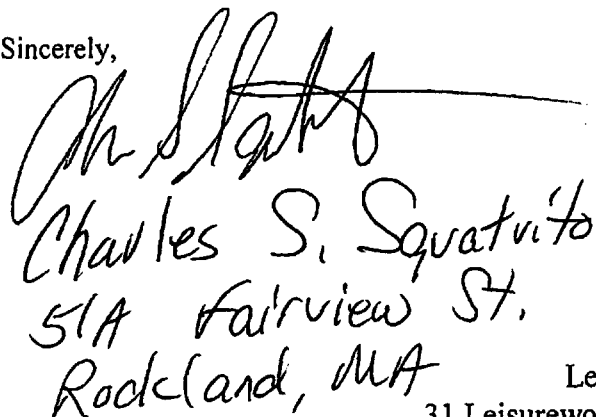 Sincerely,
Charles S. Squatrito
51A Fairview St.
Rockland, MA
Le
31 Leisurewo